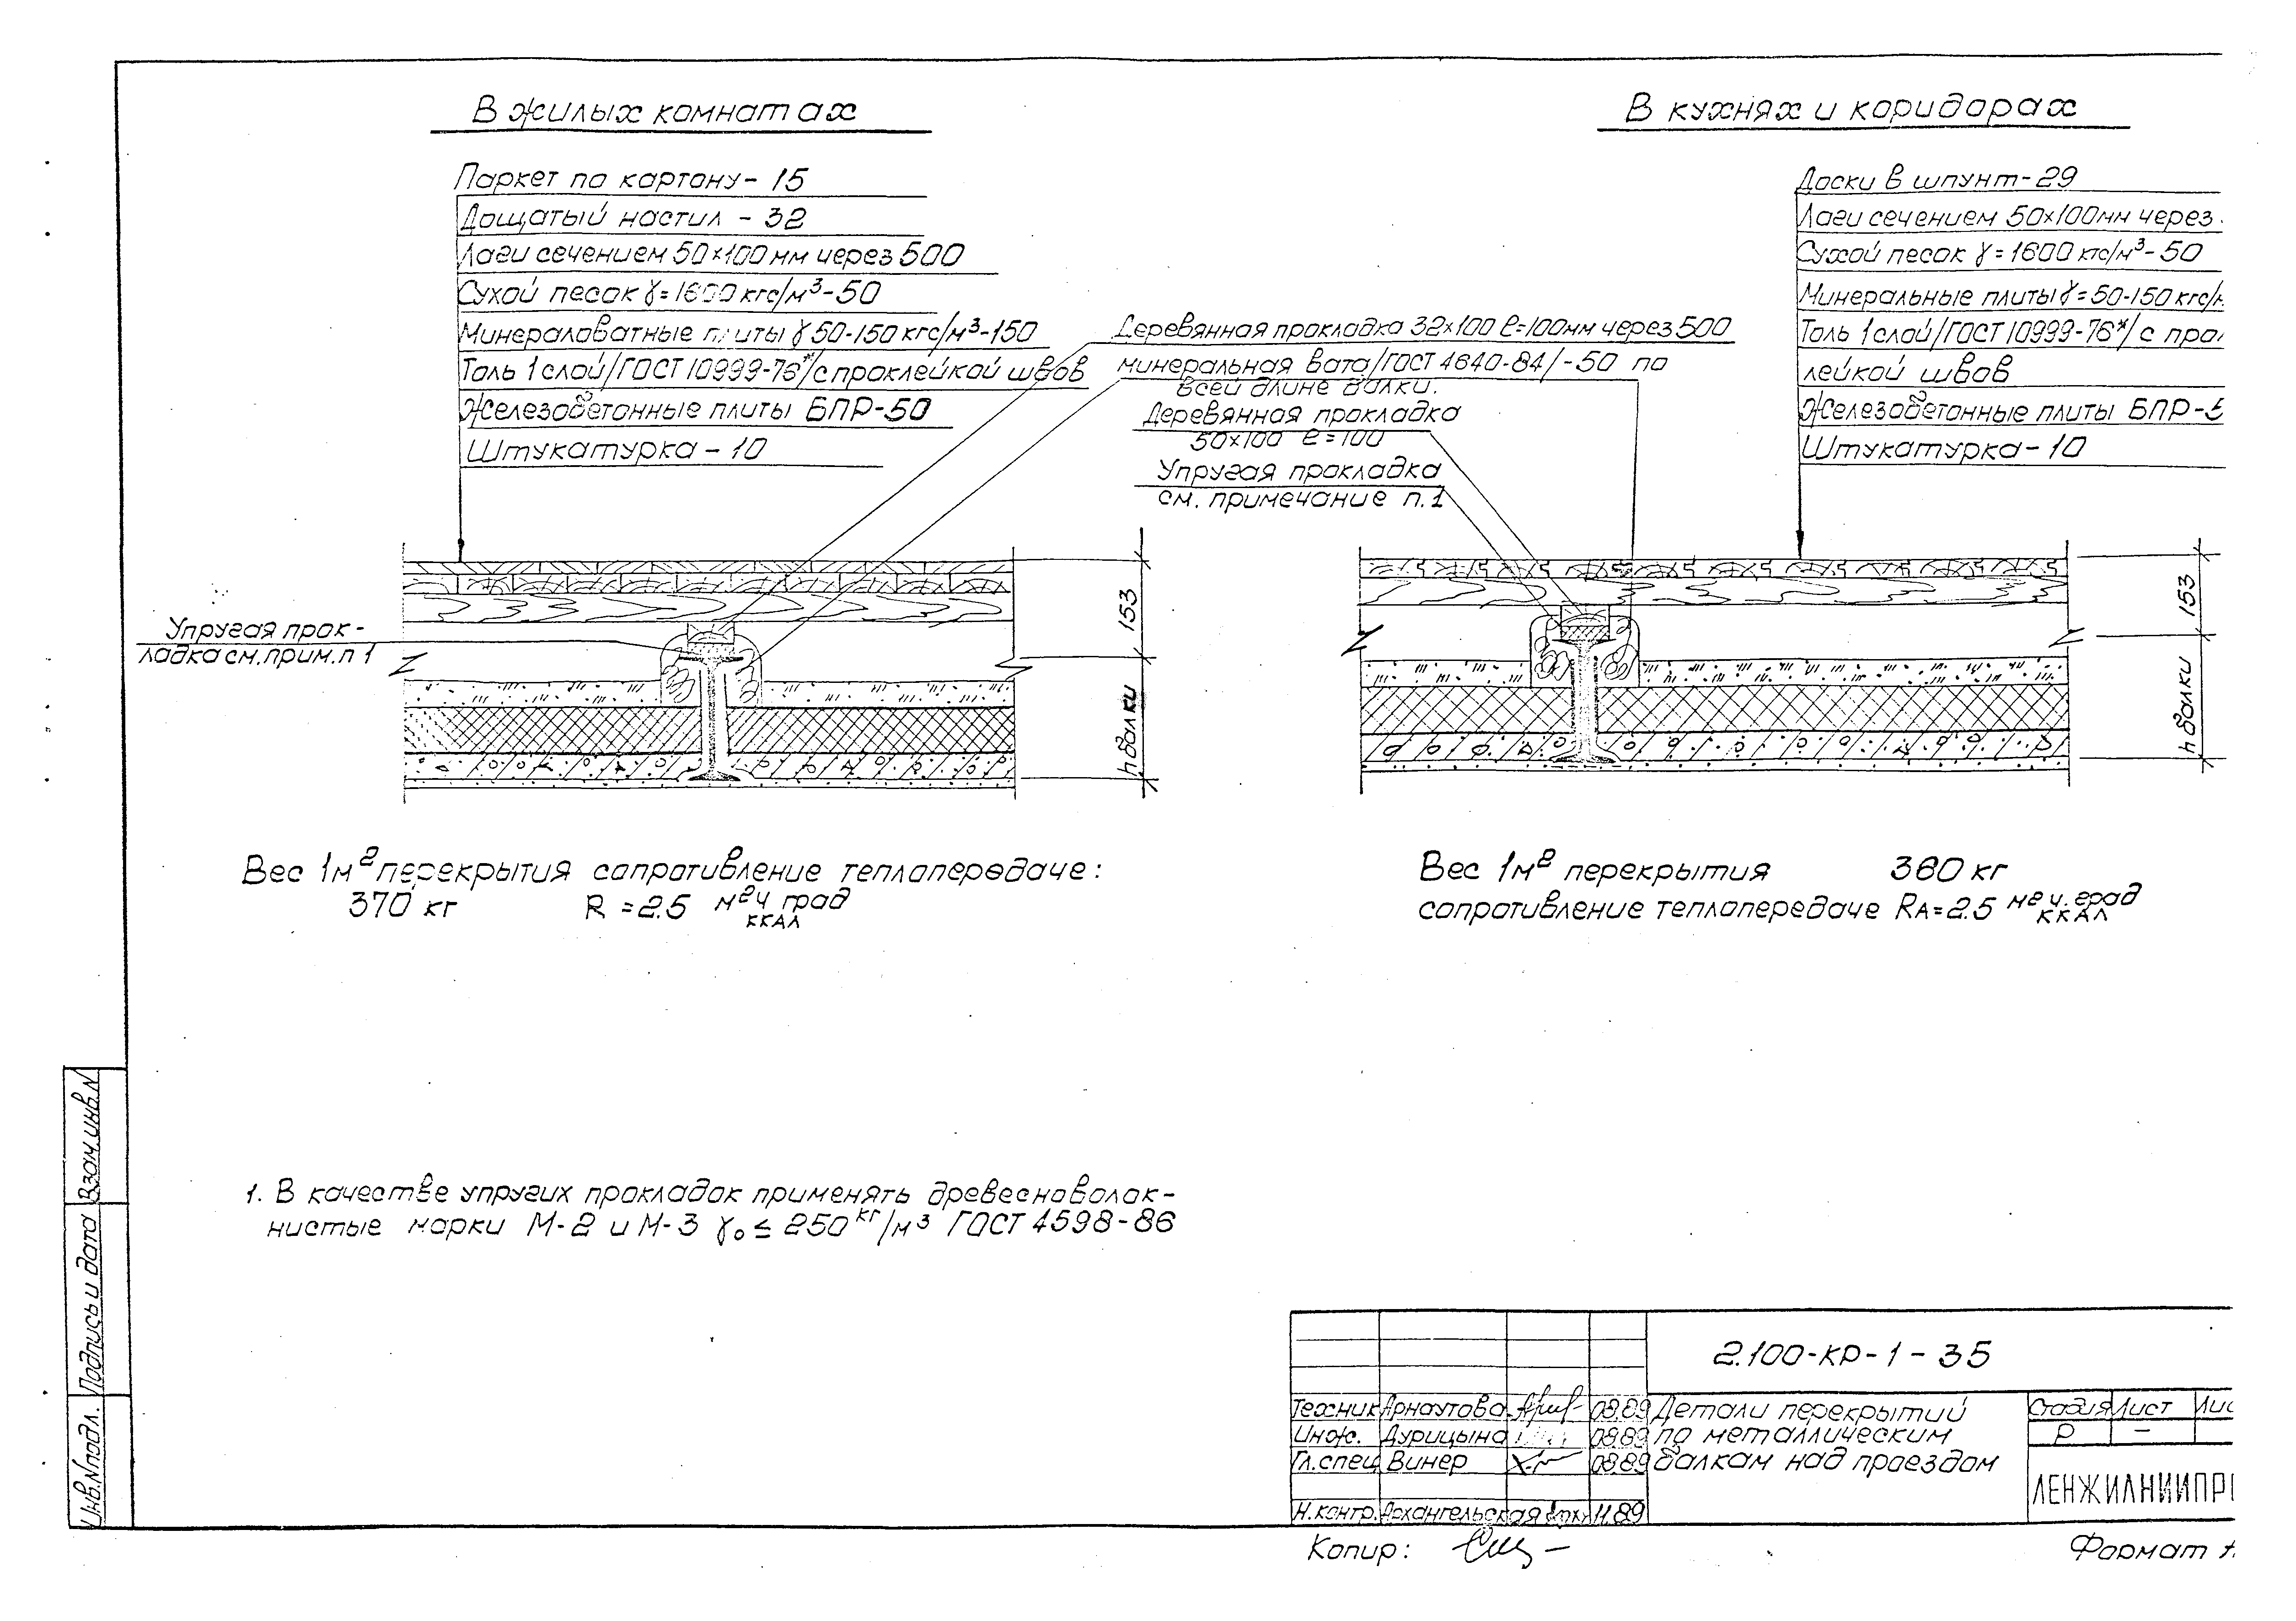 В жилых комнатах
Паркет по картону - 15
Дощатый настил - 32
Лаги сечением 50×100 мм через 500
Сухой песок γ = 1600 кгс/м³ - 50
Минераловатные плиты γ 50-150 кгс/м³ - 150
Толь 1 слой /ГОСТ 10999-76*/ с проклейкой швов
Железобетонные плиты БПР-50
Штукатурка - 10
Деревянная прокладка 32×100 ℓ=100мм через 500
минеральная вата /ГОСТ 4640-84/ - 50 по
всей длине балки.
Деревянная прокладка
50×100 ℓ=100
Упругая прокладка
см. примечание п.1
Упругая прок-
ладка см. прим. п 1
153
h балки
В кухнях и коридорах
Доски в шпунт - 29
Лаги сечением 50×100мм через
Сухой песок γ = 1600 кгс/м³ - 50
Минеральные плиты γ = 50-150 кгс/
Толь 1 слой /ГОСТ 10999-76*/ с
лейкой швов
Железобетонные плиты БПР-
Штукатурка - 10
153
h балки
Вес 1м² перекрытия сопротивление теплопередаче:
370 кг R = 2.5 м²ч град
ккал
Вес 1м² перекрытия 360 кг
сопротивление теплопередаче Rа=2.5 м²ч.град
ккал
1. В качестве упругих прокладок применять древесноволок-
нистые марки М-2 и М-3 γо ≤ 250 кг/м³ ГОСТ 4598-86
Взам.инв.N
Подпись и дата
Инв.Nподл.
2.100-КР-1-35
Техник Арнаутова 08.89
Инж. Дурицына 08.89
Гл.спец Винер 08.89
Н.контр. Архангельская 11.89
Детали перекрытий
по металлическим
балкам над проездом
Стадия Лист
Р -
ЛЕНЖИЛНИИПР
Копир:
Формат